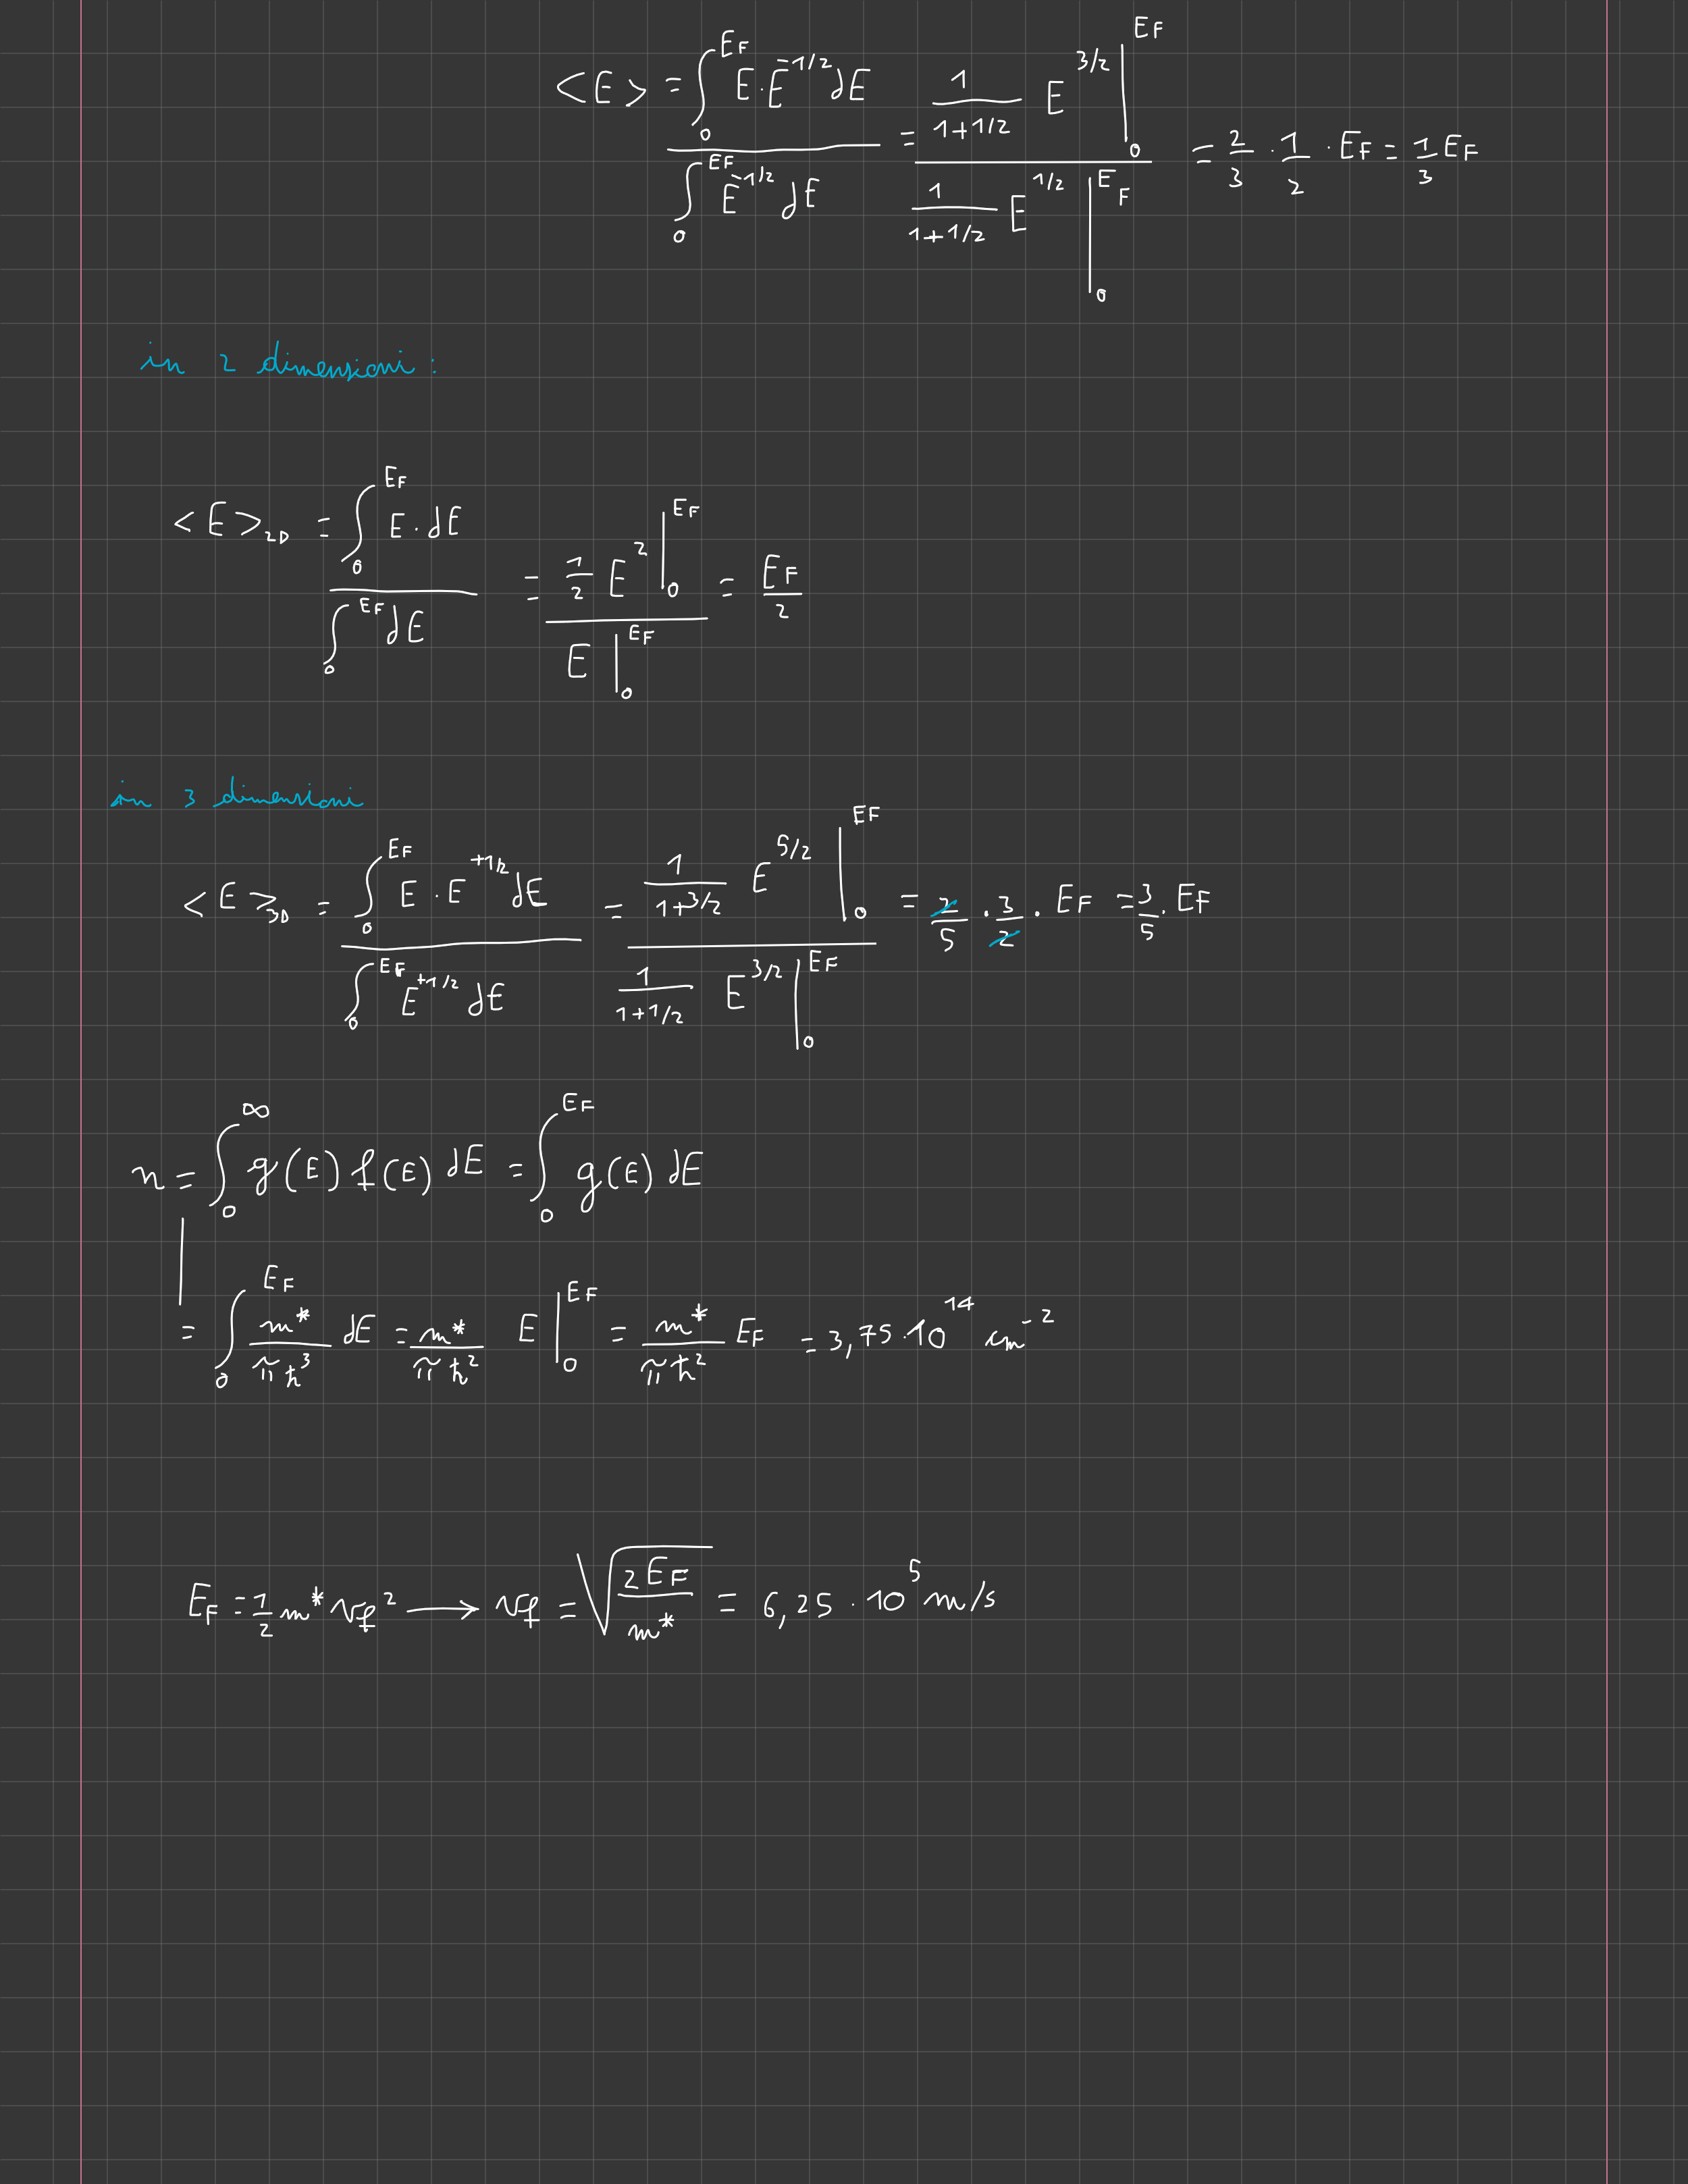 <E> = ∫₀^{E_F} E·E^{-1/2} dE / ∫₀^{E_F} E^{-1/2} dE = 1/(1+1/2) E^{3/2} |₀^{E_F} / 1/(1+1/2) E^{1/2} |₀^{E_F} = 2/3 · 1/2 · E_F = 1/3 E_F
in 2 dimensioni:
<E>_{2D} = ∫₀^{E_F} E · dE / ∫₀^{E_F} dE = 1/2 E² |₀^{E_F} / E |₀^{E_F} = E_F/2
in 3 dimensioni
<E>_{3D} = ∫₀^{E_F} E · E^{+1/2} dE / ∫₀^{E_F} E^{+1/2} dE = 1/(1+3/2) E^{5/2} |₀^{E_F} / 1/(1+1/2) E^{3/2} |₀^{E_F} = 2/5 · 3/2 · E_F = 3/5 · E_F
n = ∫₀^∞ g(E) f(E) dE = ∫₀^{E_F} g(E) dE
= ∫₀^{E_F} m*/(πħ³) dE = m*/(πħ²) E |₀^{E_F} = m*/(πħ²) E_F = 3,75·10^{14} cm^{-2}
E_F = 1/2 m* v_f² → v_f = √(2E_F/m*) = 6,25 · 10⁵ m/s